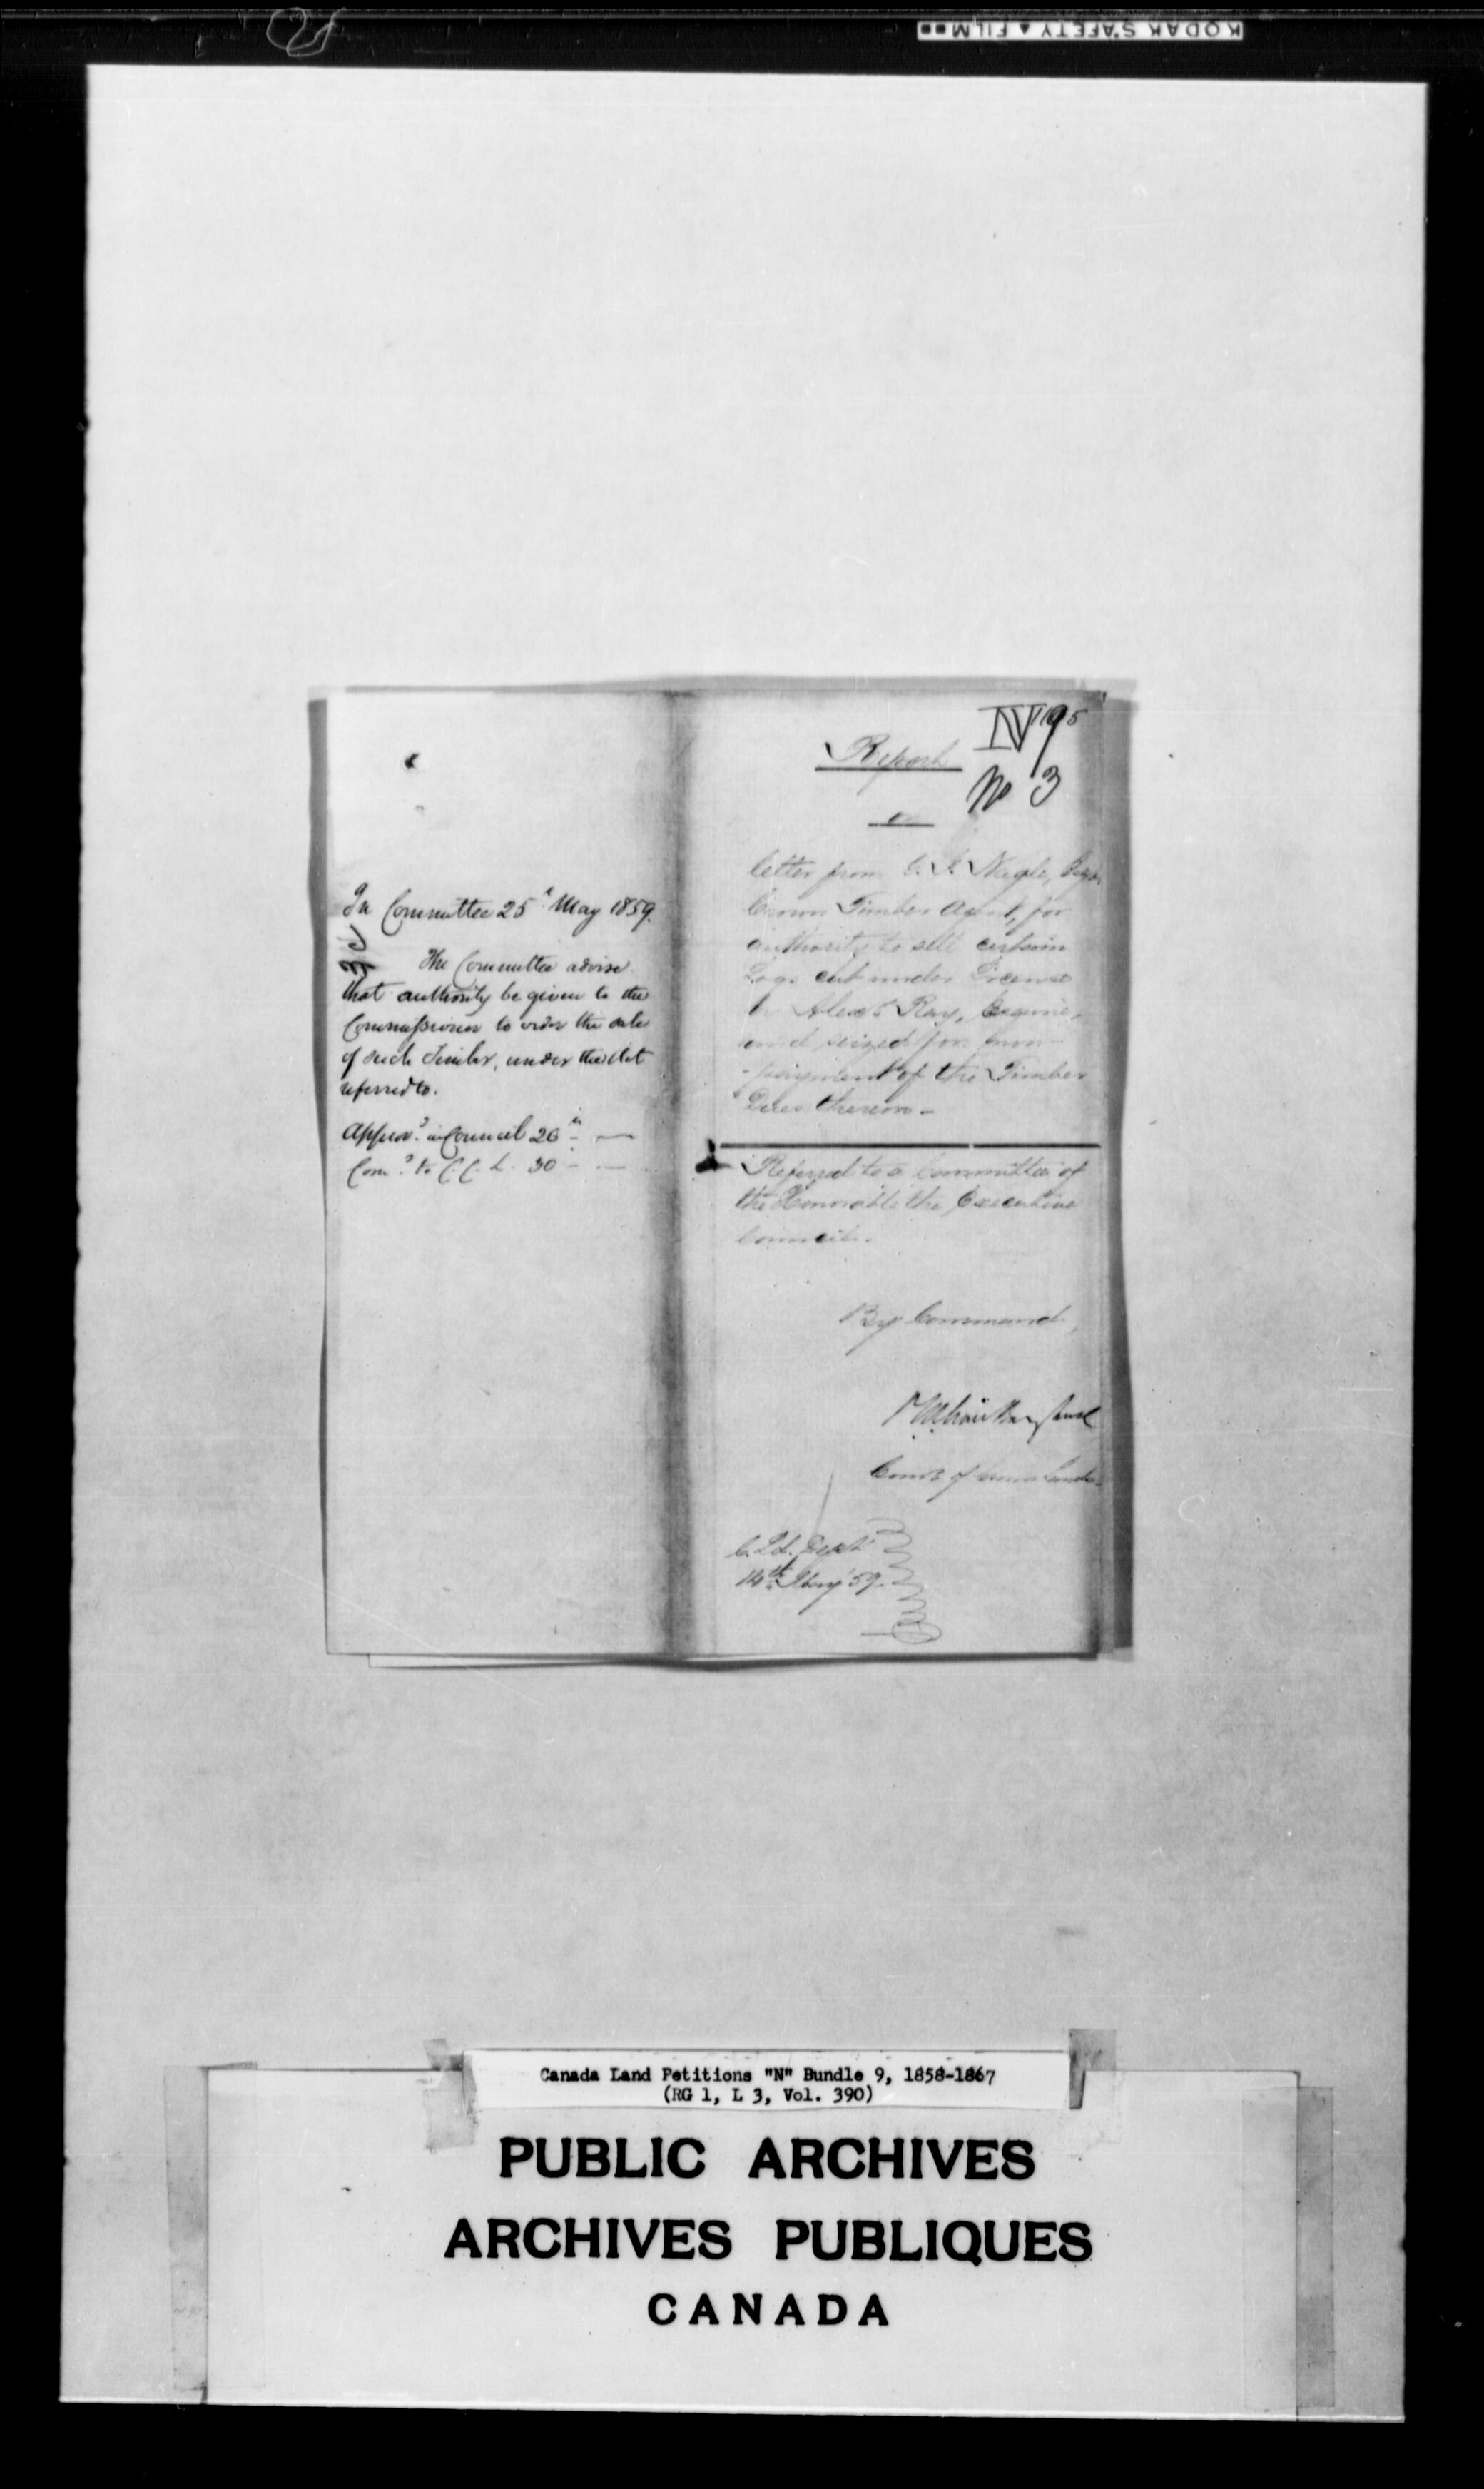 KODAK SAFETY ▲ FILM
In Committee 25th May 1859.
The Committee advise
that authority be given to the
Commissioner to order the sale
of such Timber, under the Act
referred to.
Approvd in Council 26th
Comd to C.C.L. 30
IV 95
No 3
Report
on
letter from G. J. Nagle, Esqr
Crown Timber Agent, for
authority to sell certain
Logs cut under License
by Alexr Ray, Esquire,
and seized for non-
payment of the Timber
Dues thereon -
Referred to a Committee of
the Honorable the Executive
Council.
By Command,
Comr of Crown Lands
C. Ld. Dept
14th May '59.
Canada Land Petitions "N" Bundle 9, 1858-1867
(RG 1, L 3, Vol. 390)
PUBLIC ARCHIVES
ARCHIVES PUBLIQUES
CANADA